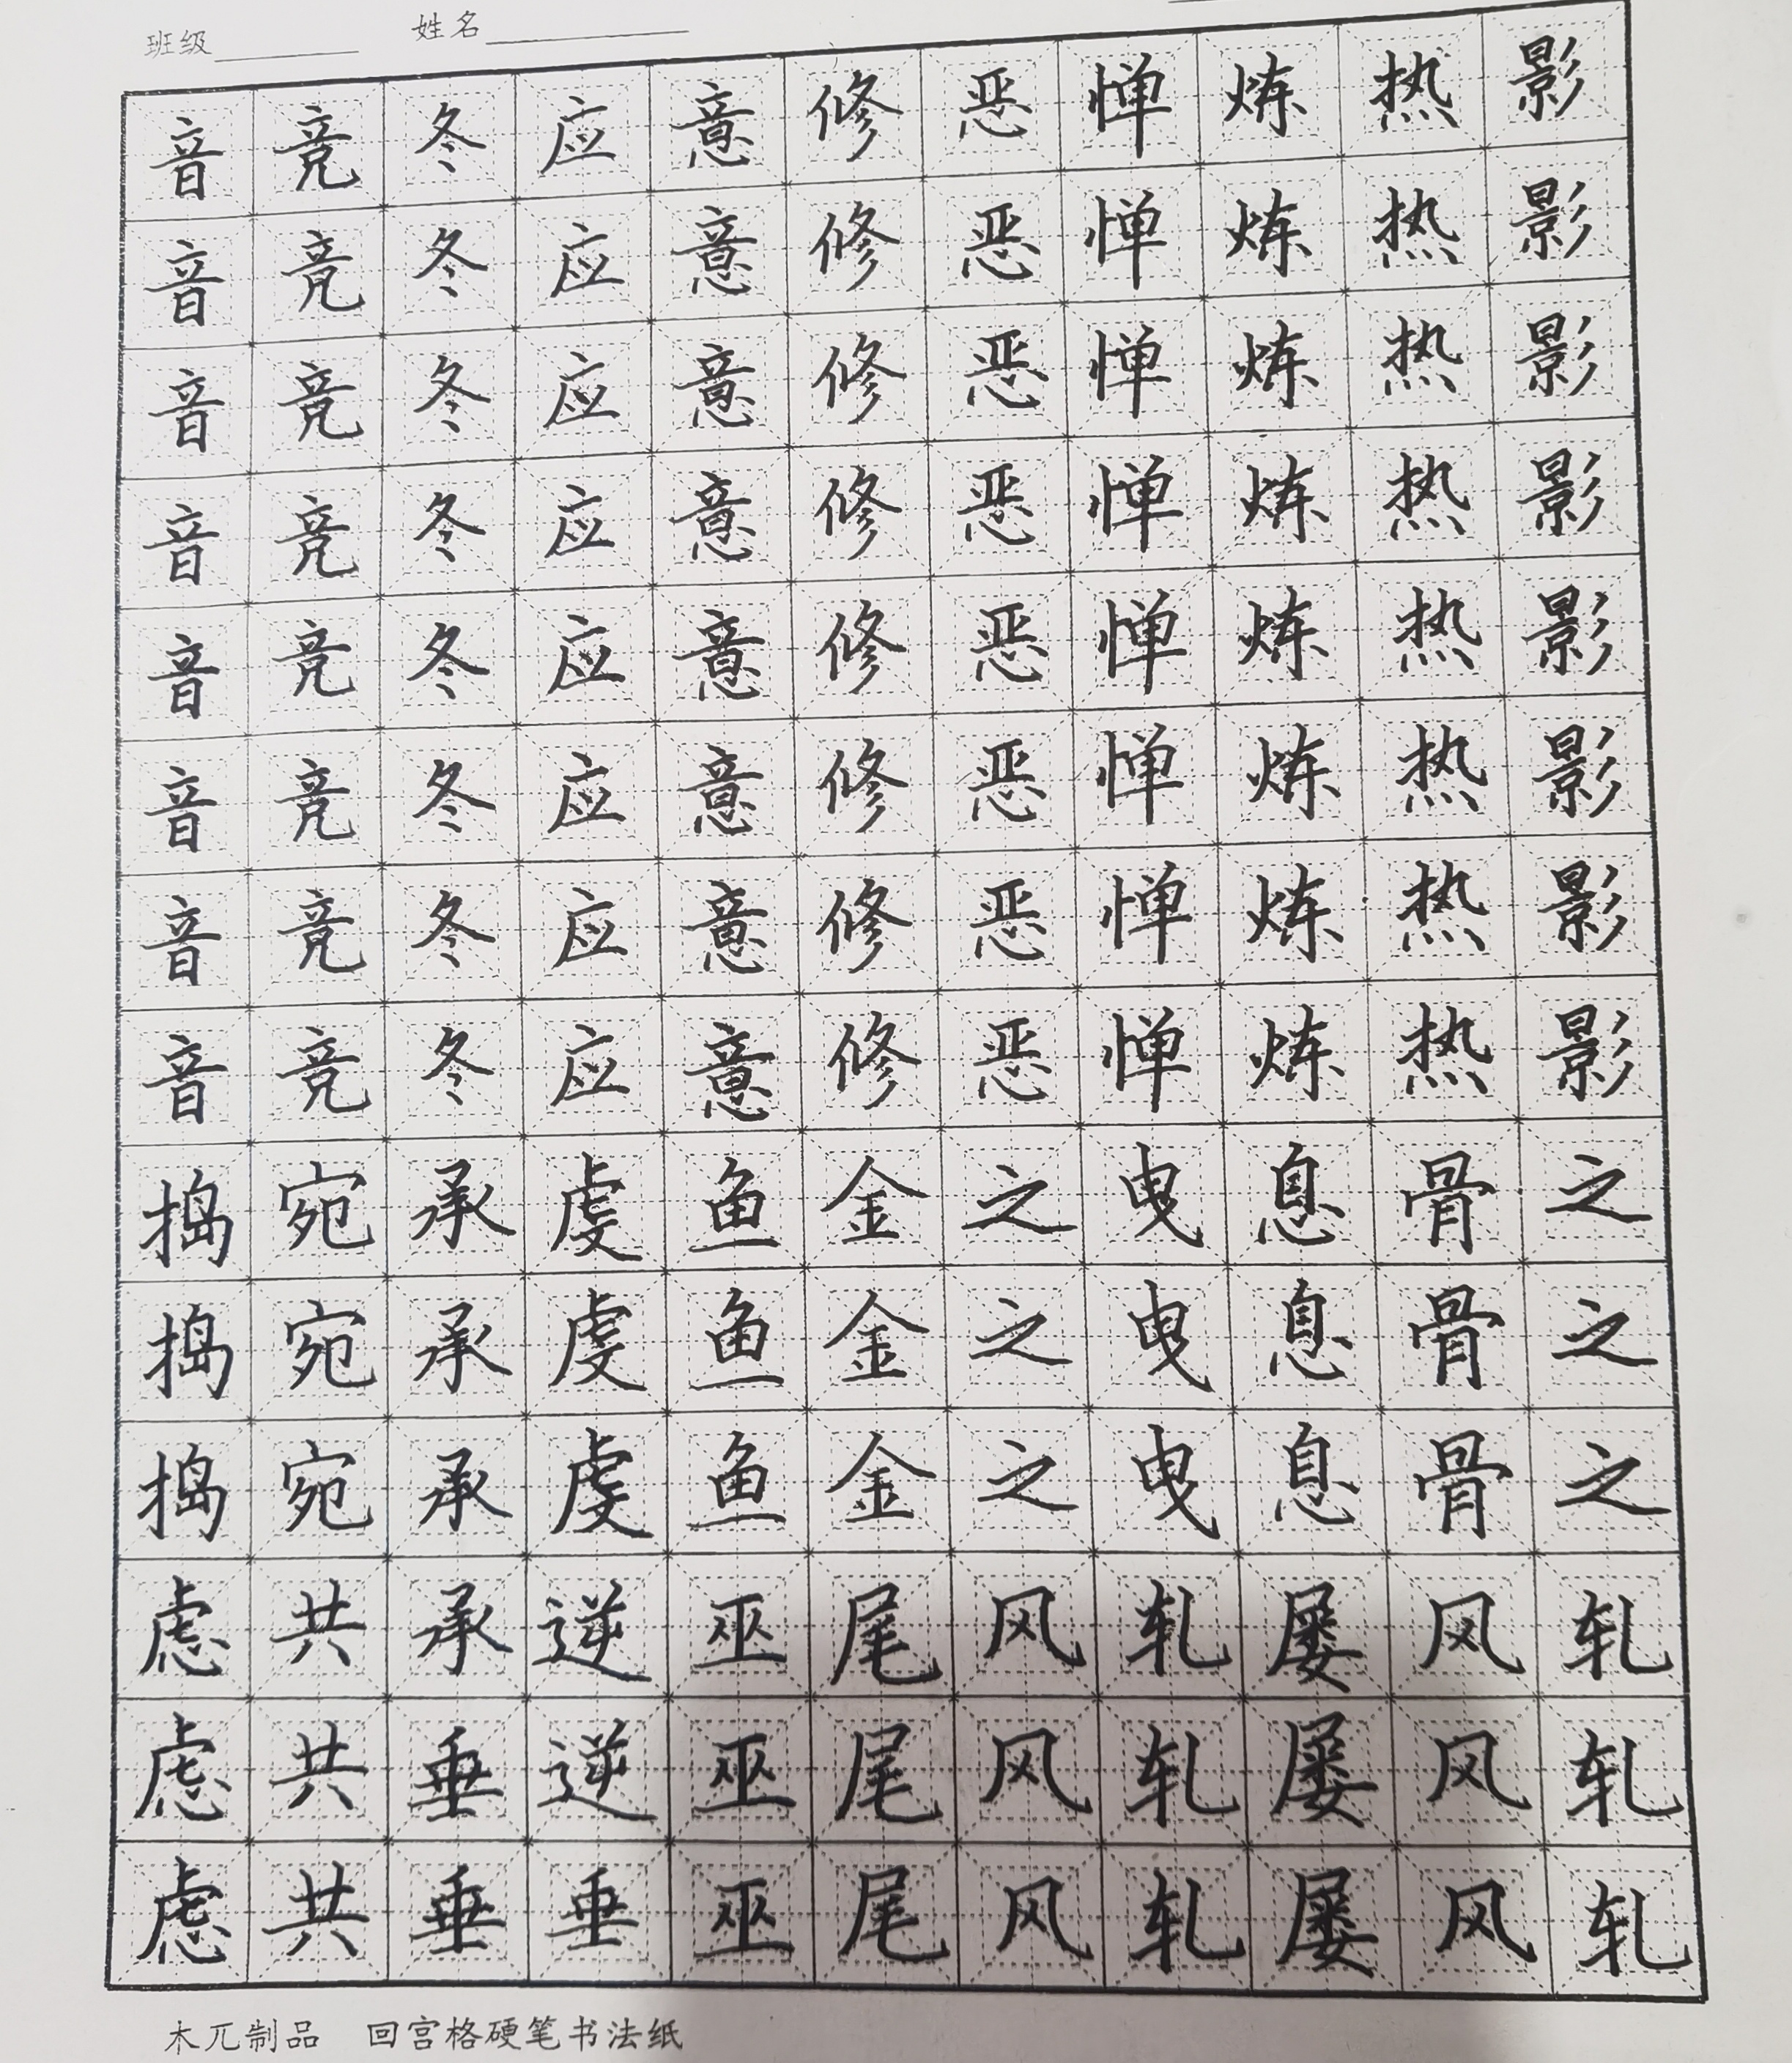 班级 姓名
音 竞 冬 应 意 修 恶 惮 炼 热 影
音 竞 冬 应 意 修 恶 惮 炼 热 影
音 竞 冬 应 意 修 恶 惮 炼 热 影
音 竞 冬 应 意 修 恶 惮 炼 热 影
音 竞 冬 应 意 修 恶 惮 炼 热 影
音 竞 冬 应 意 修 恶 惮 炼 热 影
音 竞 冬 应 意 修 恶 惮 炼 热 影
音 竞 冬 应 意 修 恶 惮 炼 热 影
捣 宛 承 虔 鱼 金 之 曳 息 骨 之
捣 宛 承 虔 鱼 金 之 曳 息 骨 之
捣 宛 承 虔 鱼 金 之 曳 息 骨 之
虑 共 承 逆 巫 尾 风 轧 屡 风 轧
虑 共 垂 逆 巫 尾 风 轧 屡 风 轧
虑 共 垂 垂 巫 尾 风 轧 屡 风 轧
木兀制品 回宫格硬笔书法纸